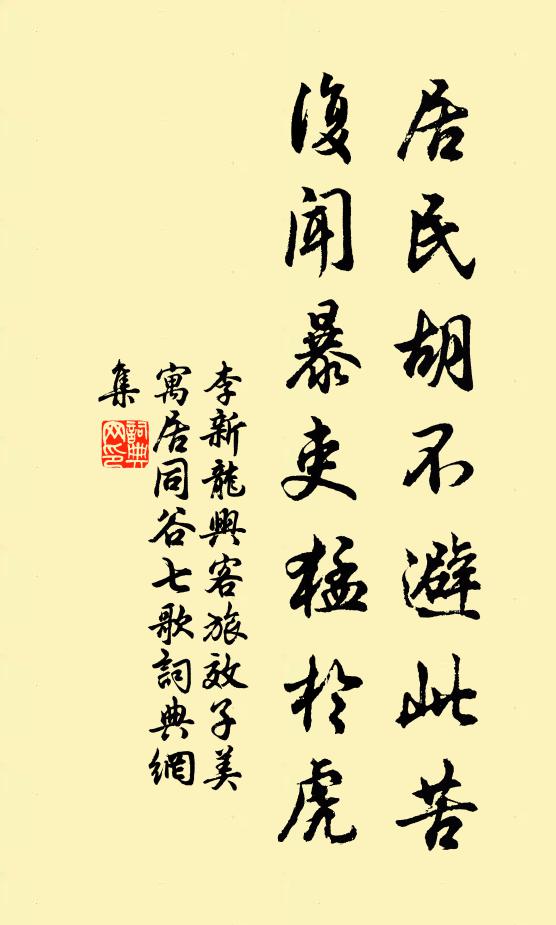 居民胡不避此苦
復聞暴吏猛於虎
李新龍興客旅效子美
寓居同谷七歌詞典網
集
詞典
网印